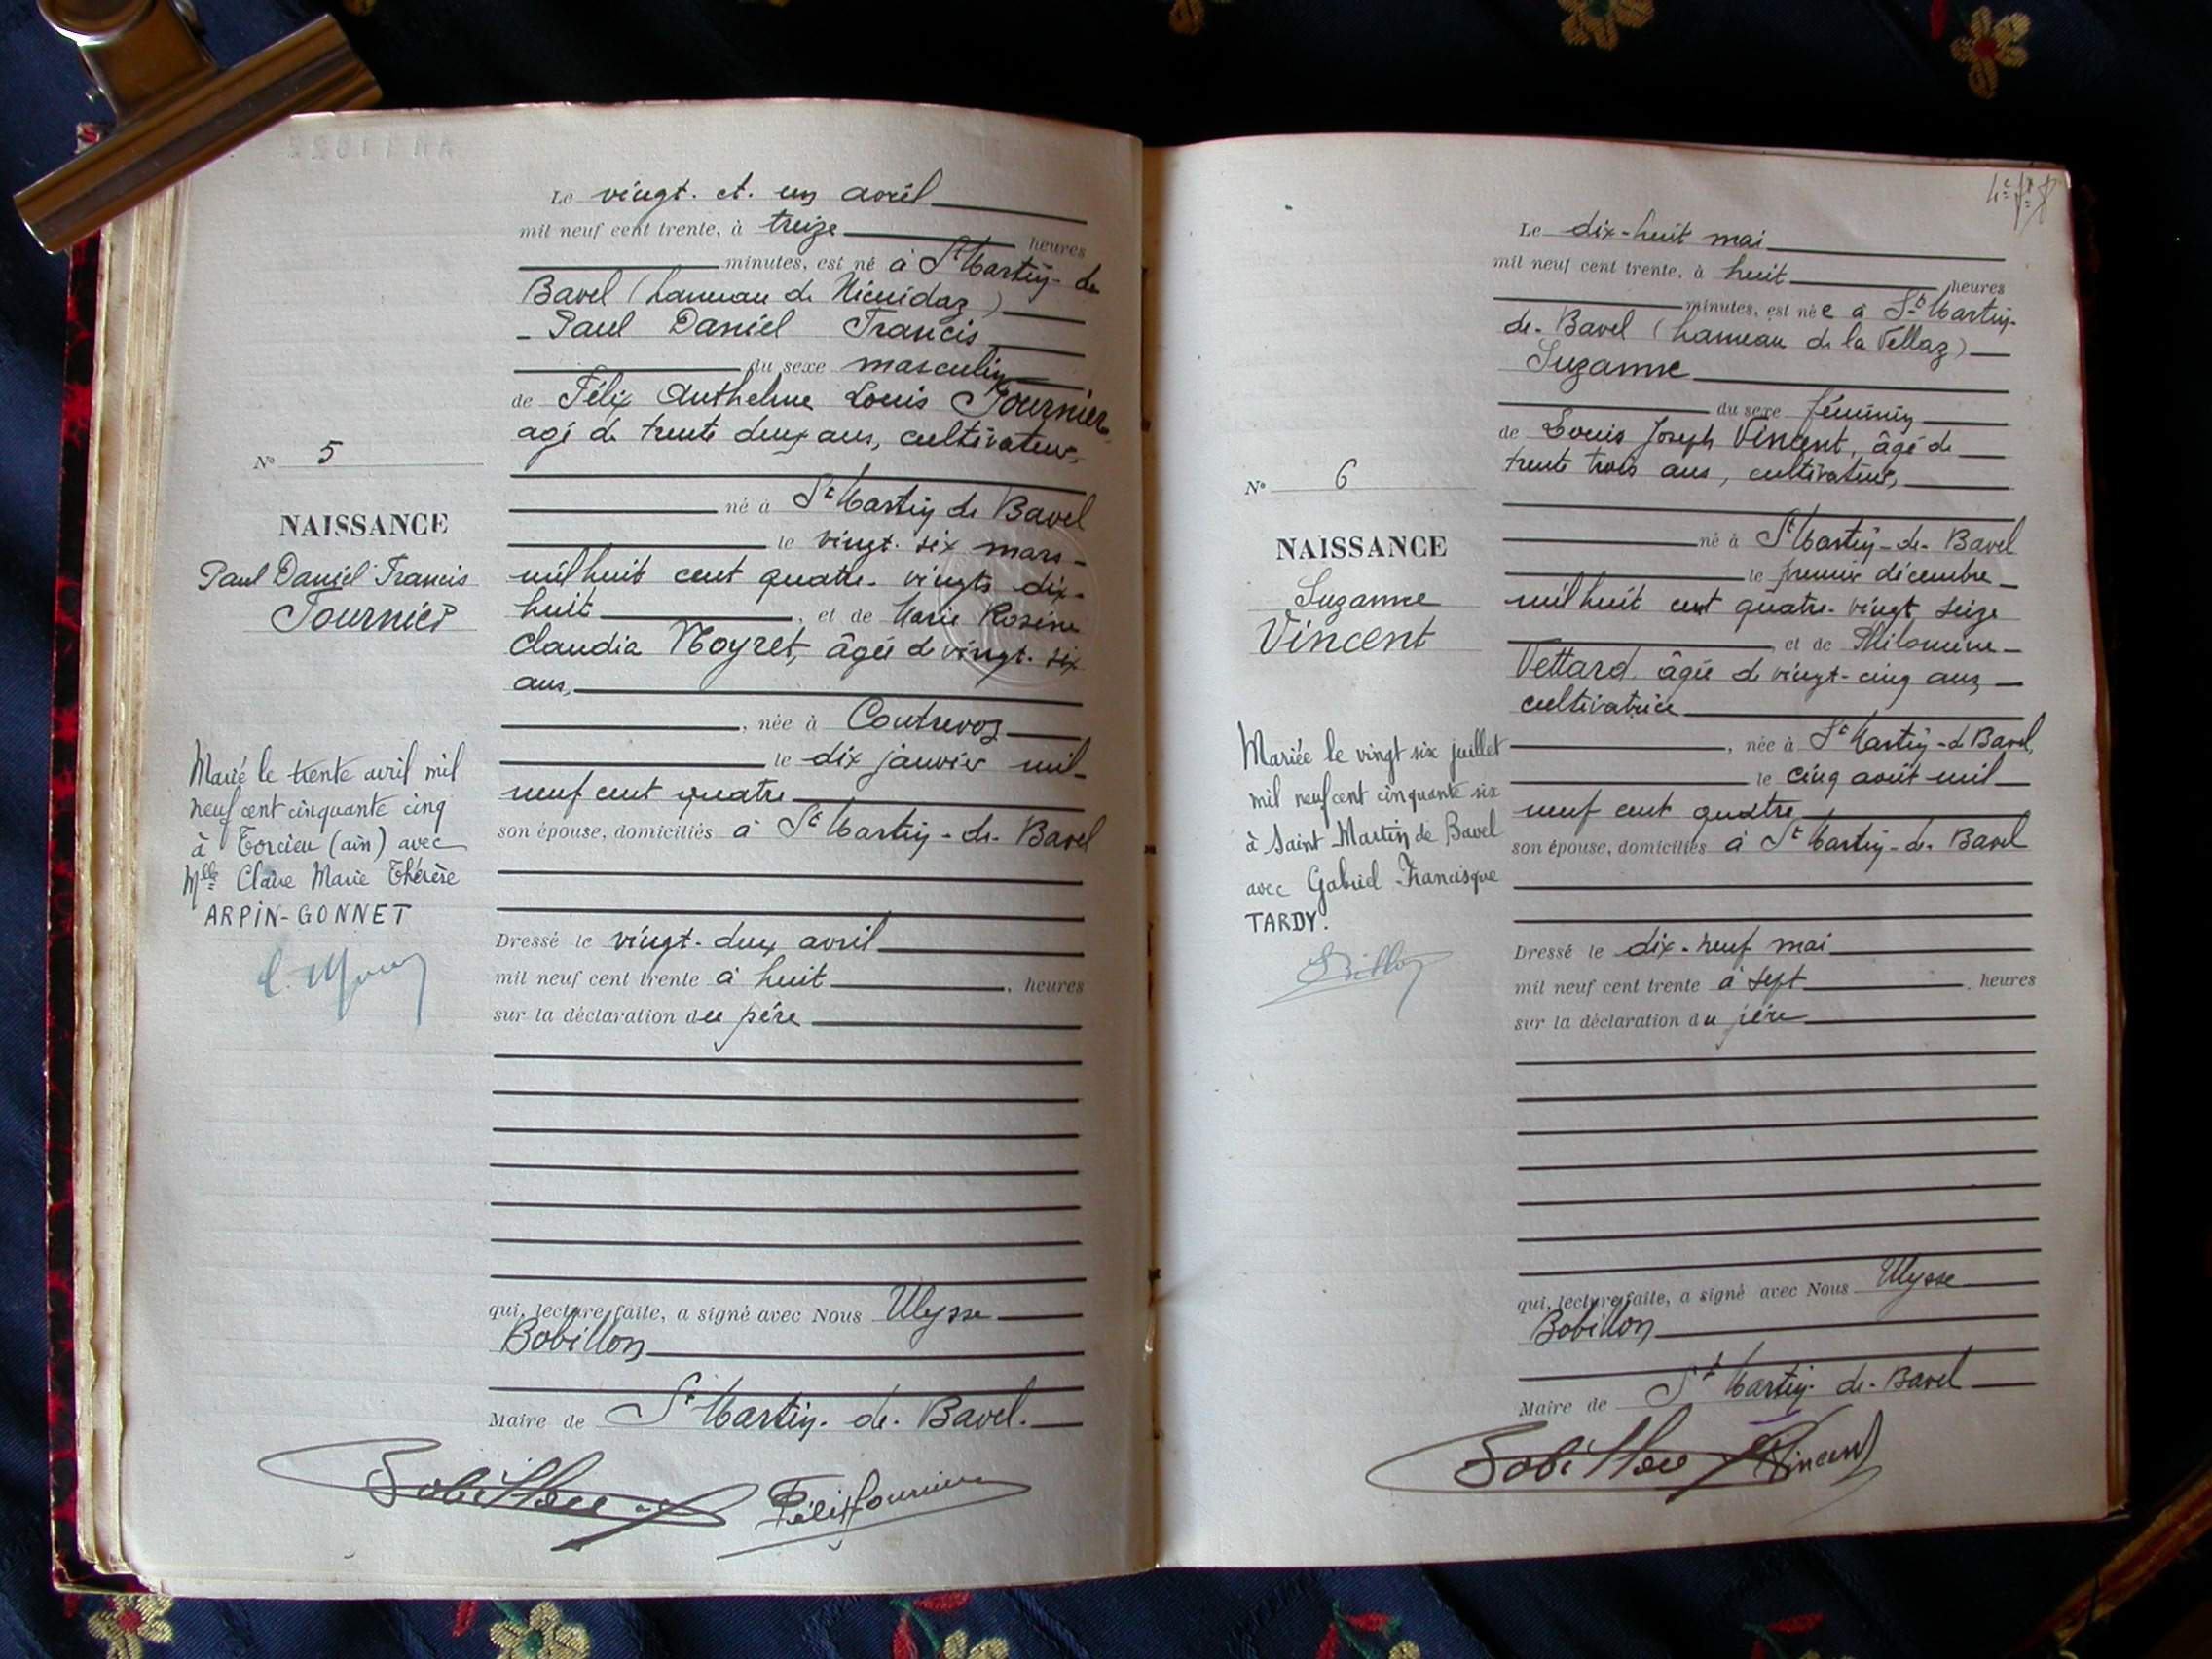 Le vingt. et. un avril
mil neuf cent trente, à treize heures
minutes, est né à St Martin-de
Bavel (hameau de
Paul Daniel Francis
du sexe masculin
de Félix Anthelme Louis Fournier
agé de trente deux ans, cultivateur,
né à St Martin de Bavel
le vingt. six mars
mil huit cent quatre-vingts dix-
huit, et de Marie Rosine
Claudia Noyret, âgée de vingt-six
ans,
, née à Contrevoz
le dix janvier mil
neuf cent quatre
son épouse, domiciliés à St Martin-de-Bavel
Dressé le vingt-deux avril
mil neuf cent trente à huit, heures
sur la déclaration du père
qui, lecture faite, a signé avec Nous Ulysse
Bobillon
Maire de St Martin. de. Bavel.
Bobillon Félix Fournier
No 5
NAISSANCE
Paul Daniel Francis
Fournier
Marié le trente avril mil
neuf cent cinquante cinq
à Torcieu (ain) avec
Mlle Claire Marie Thérèse
ARPIN-GONNET
Le dix-huit mai
mil neuf cent trente, à huit heures
minutes, est née à St Martin-
de-Bavel (hameau de la Vellaz)
Suzanne
du sexe féminin
de Louis Joseph Vincent, âgé de
trente trois ans, cultivateur,
né à St Martin-de-Bavel
le premier décembre
mil huit cent quatre-vingt seize
, et de Philomène
Vettard, âgée de vingt-cinq ans,
cultivatrice
, née à St Martin-de Bavel,
le cinq août mil
neuf cent quatre
son épouse, domiciliés à St Martin-de-Bavel
Dressé le dix-neuf mai
mil neuf cent trente à sept, heures
sur la déclaration du père
qui, lecture faite, a signé avec Nous Ulysse
Bobillon
Maire de St Martin-de-Bavel
Bobillon Vincent
No 6
NAISSANCE
Suzanne
Vincent
Mariée le vingt six juillet
mil neuf cent cinquante six
à Saint Martin de Bavel
avec Gabriel Francisque
TARDY.